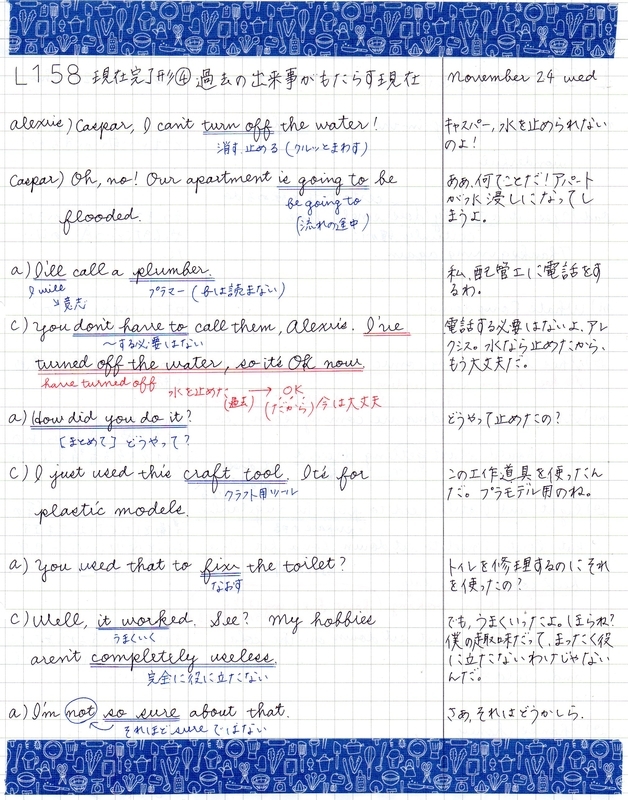 L158 現在完了形④ 過去の出来事がもたらす現在
November 24 wed
alexis) Caspar, I can't turn off the water!
消す、止める (クルッとまわす)
キャスパー、水を止められない
のよ!
Caspar) Oh, no! Our apartment is going to be
be going to
flooded.
(流れの途中)
ああ、何てことだ!アパート
が水浸しになってし
まうよ。
a) I'll call a plumber.
I will
↘意志
プラマー (bは読まない)
私、配管工に電話をす
るわ。
C) You don't have to call them, Alexis. I've
〜する必要はない
turned off the water, so it's OK now.
have turned off 水を止めた (過去) → OK
(だから) 今は大丈夫
電話する必要はないよ、アレ
クシス。水なら止めたから、
もう大丈夫だ。
a) How did you do it?
[まとめて] どうやって?
どうやって止めたの?
C) I just used this craft tool. It's for
クラフト用ツール
plastic models.
この工作道具を使ったん
だ。プラモデル用のね。
a) You used that to fix the toilet?
なおす
トイレを修理するのにそれ
を使ったの?
C) Well, it worked. See? My hobbies
うまくいく
aren't completely useless.
完全に役に立たない
でも、うまくいったよ。ほらね?
僕の趣味だって、まったく役
に立たないわけじゃない
んだ。
a) I'm not so sure about that.
それほどsureではない
さあ、それはどうかしら。